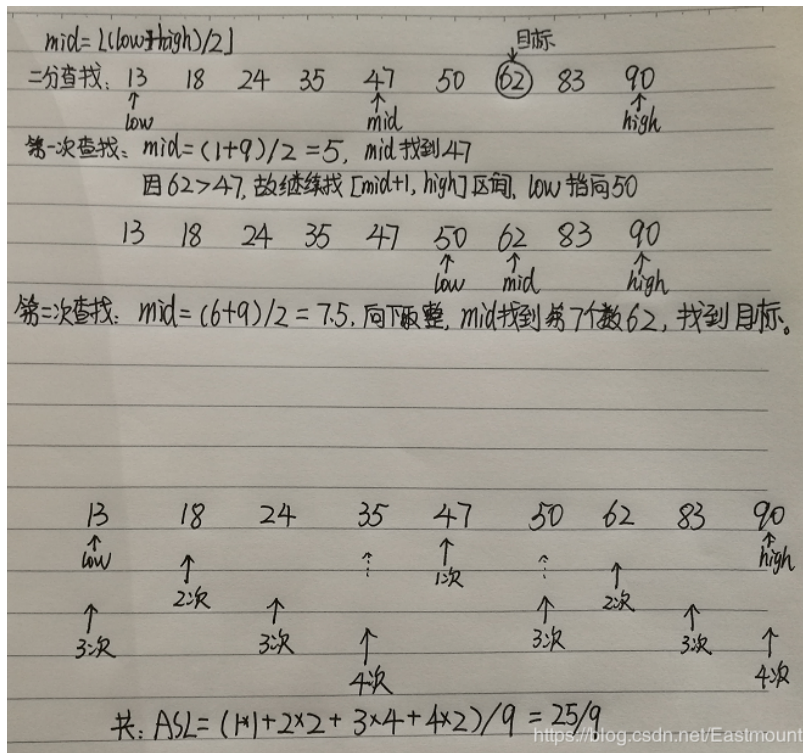 mid=⌊(low+high)/2⌋
目标
二分查找: 13 18 24 35 47 50 62 83 90
low mid high
第一次查找: mid=(1+9)/2=5, mid找到47
因62>47, 故继续找[mid+1, high]区间, low指向50
13 18 24 35 47 50 62 83 90
low mid high
第二次查找: mid=(6+9)/2=7.5, 向下取整, mid找到第7个数62, 找到目标。
13 18 24 35 47 50 62 83 90
low 1次 high
2次 2次
3次 3次 3次 3次
4次 4次
共: ASL=(1*1+2×2+3×4+4×2)/9=25/9
https://blog.csdn.net/Eastmount